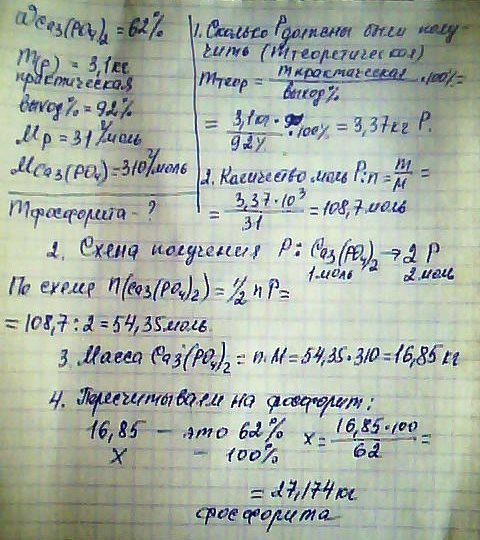 ω Ca3(PO4)2 = 62%
m(p) = 3,1 кг
практическая
выход% = 92%
Mр = 31 г/моль
M Ca3(PO4)2 = 310 г/моль
m фосфорита - ?
1. Сколько P должны были полу-
чить (m теоретическая)
m теор = m практическая / выход% · 100% =
= 3,1 кг / 92% · 100% = 3,37 кг P.
2. Количество моль P: n = m/M =
= 3,37·10³ / 31 = 108,7 моль
2. Схема получения P: Ca3(PO4)2 → 2 P
1 моль 2 моль
По схеме n(Ca3(PO4)2) = 1/2 n P =
= 108,7 : 2 = 54,35 моль.
3. Масса Ca3(PO4)2 = n·M = 54,35·310 = 16,85 кг
4. Пересчитываем на фосфорит:
16,85 – это 62% x = 16,85·100 / 62 =
x – 100%
= 27,174 кг
фосфорита